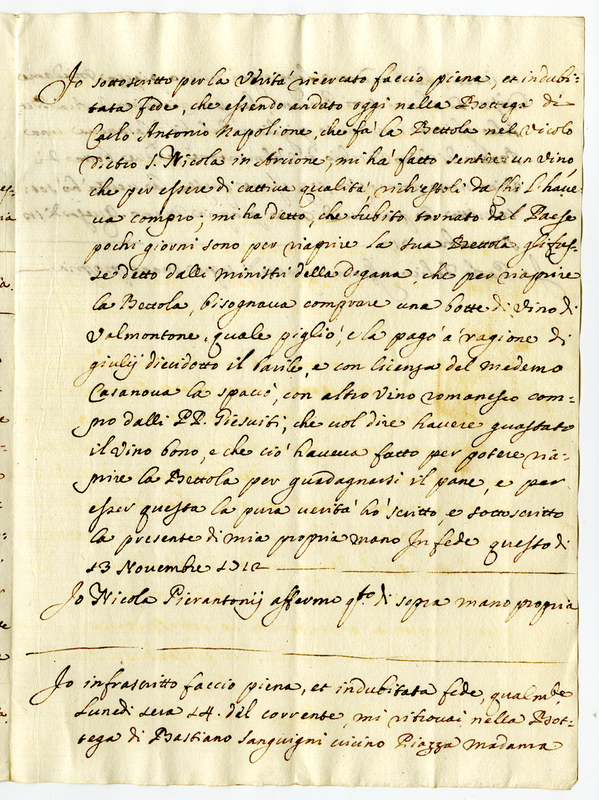 Io sottoscritto per la Verità ricercato faccio piena, et indubi=
tata fede, che essendo andato oggi nella Bottega di
Carlo Antonio Napolione, che fà la Bettola nel Vicolo
dietro S. Nicola in Arcione, mi hà fatto sentire un vino
che per essere di cattiva qualità richiestoli da chi l'have=
va compro; mi ha detto, che subito tornato dal Paese
pochi giorni sono per riaprire la sua Bettola gli fus=
se detto dalli ministri della dogana, che per riaprire
la Bettola, bisognava comprare una botte di Vino di
Valmontone, quale pigliò, e la pagò à ragione di
giulij diecidotto il barile, e con licenza del medemo
Casanova la spacciò, con altro vino romanesco com=
pro dalli PP. Giesuiti, che vol dire havere guastato
il vino bono, e che ciò haveva fatto per potere ria=
prire la Bettola per guadagnarsi il pane, e per
esser questa la pura verità hò scritto, e sottoscritto
la presente di mia propria mano In fede questo dì
13 Novembre 1712
Io Nicola Pierantonij affermo q.to di sopra mano propria
Io infrascritto faccio piena, et indubitata fede, qualm.te
Lunedì sera 14. del corrente, mi ritrovai nella Bot=
tega di Bastiano Sanguigni vicino Piazza Madama